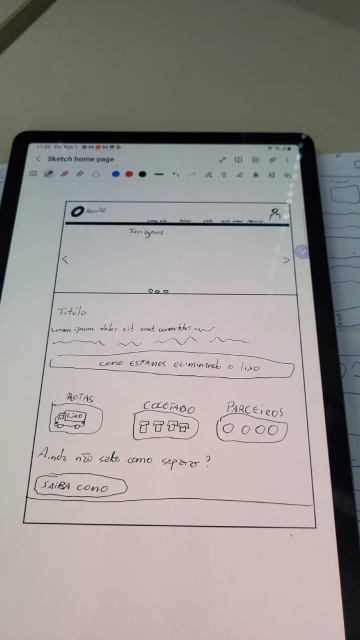 11:39 Fri, Nov 1
Sketch home page
Imagens
Titulo
Lorem ipsum dolor sit amet consectetur
COMO ESTAMOS ELIMINANDO O LIXO
ROTAS
COLETADO
PARCEIROS
LIXO
Ainda não sabe como separar?
SAIBA COMO